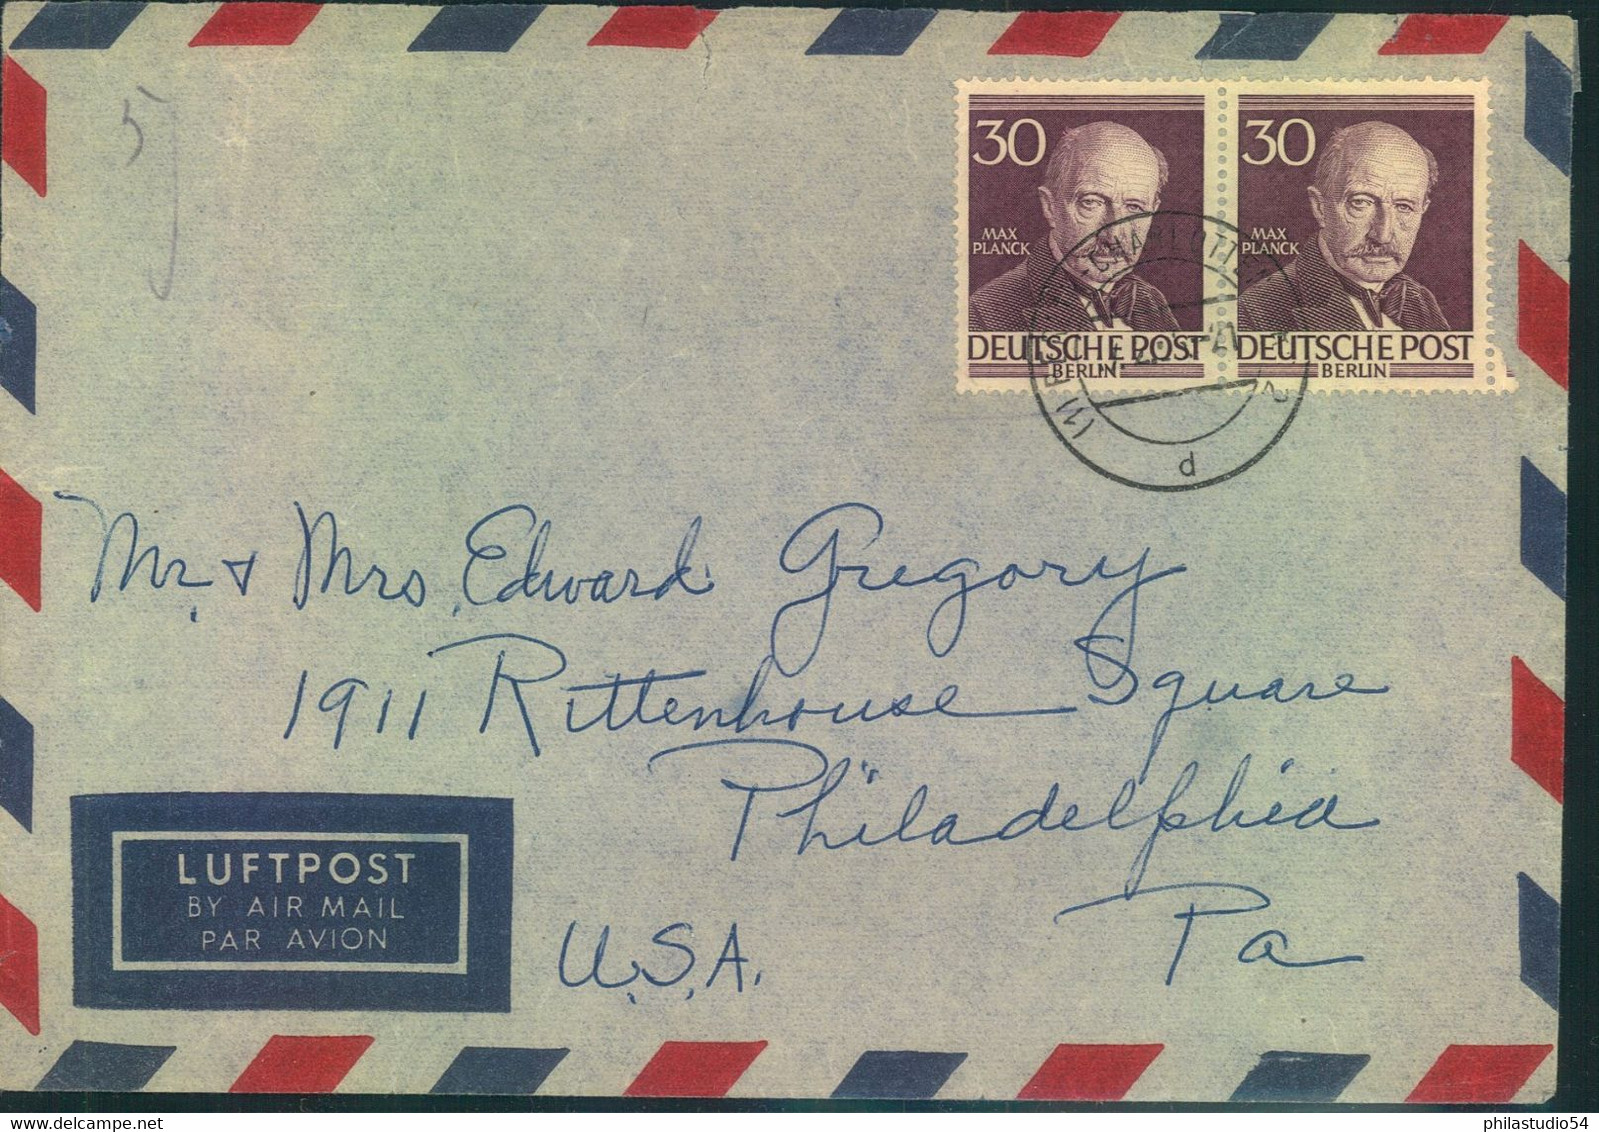 5
30
MAX
PLANCK
DEUTSCHE POST
BERLIN
30
MAX
PLANCK
DEUTSCHE POST
BERLIN
(1) BERLIN-CHARLOTTENBURG 2
p
Mr. + Mrs. Edward Gregory
1911 Rittenhouse Square
Philadelphia
Pa
U.S.A.
LUFTPOST
BY AIR MAIL
PAR AVION
www.delcampe.net
philastudio54